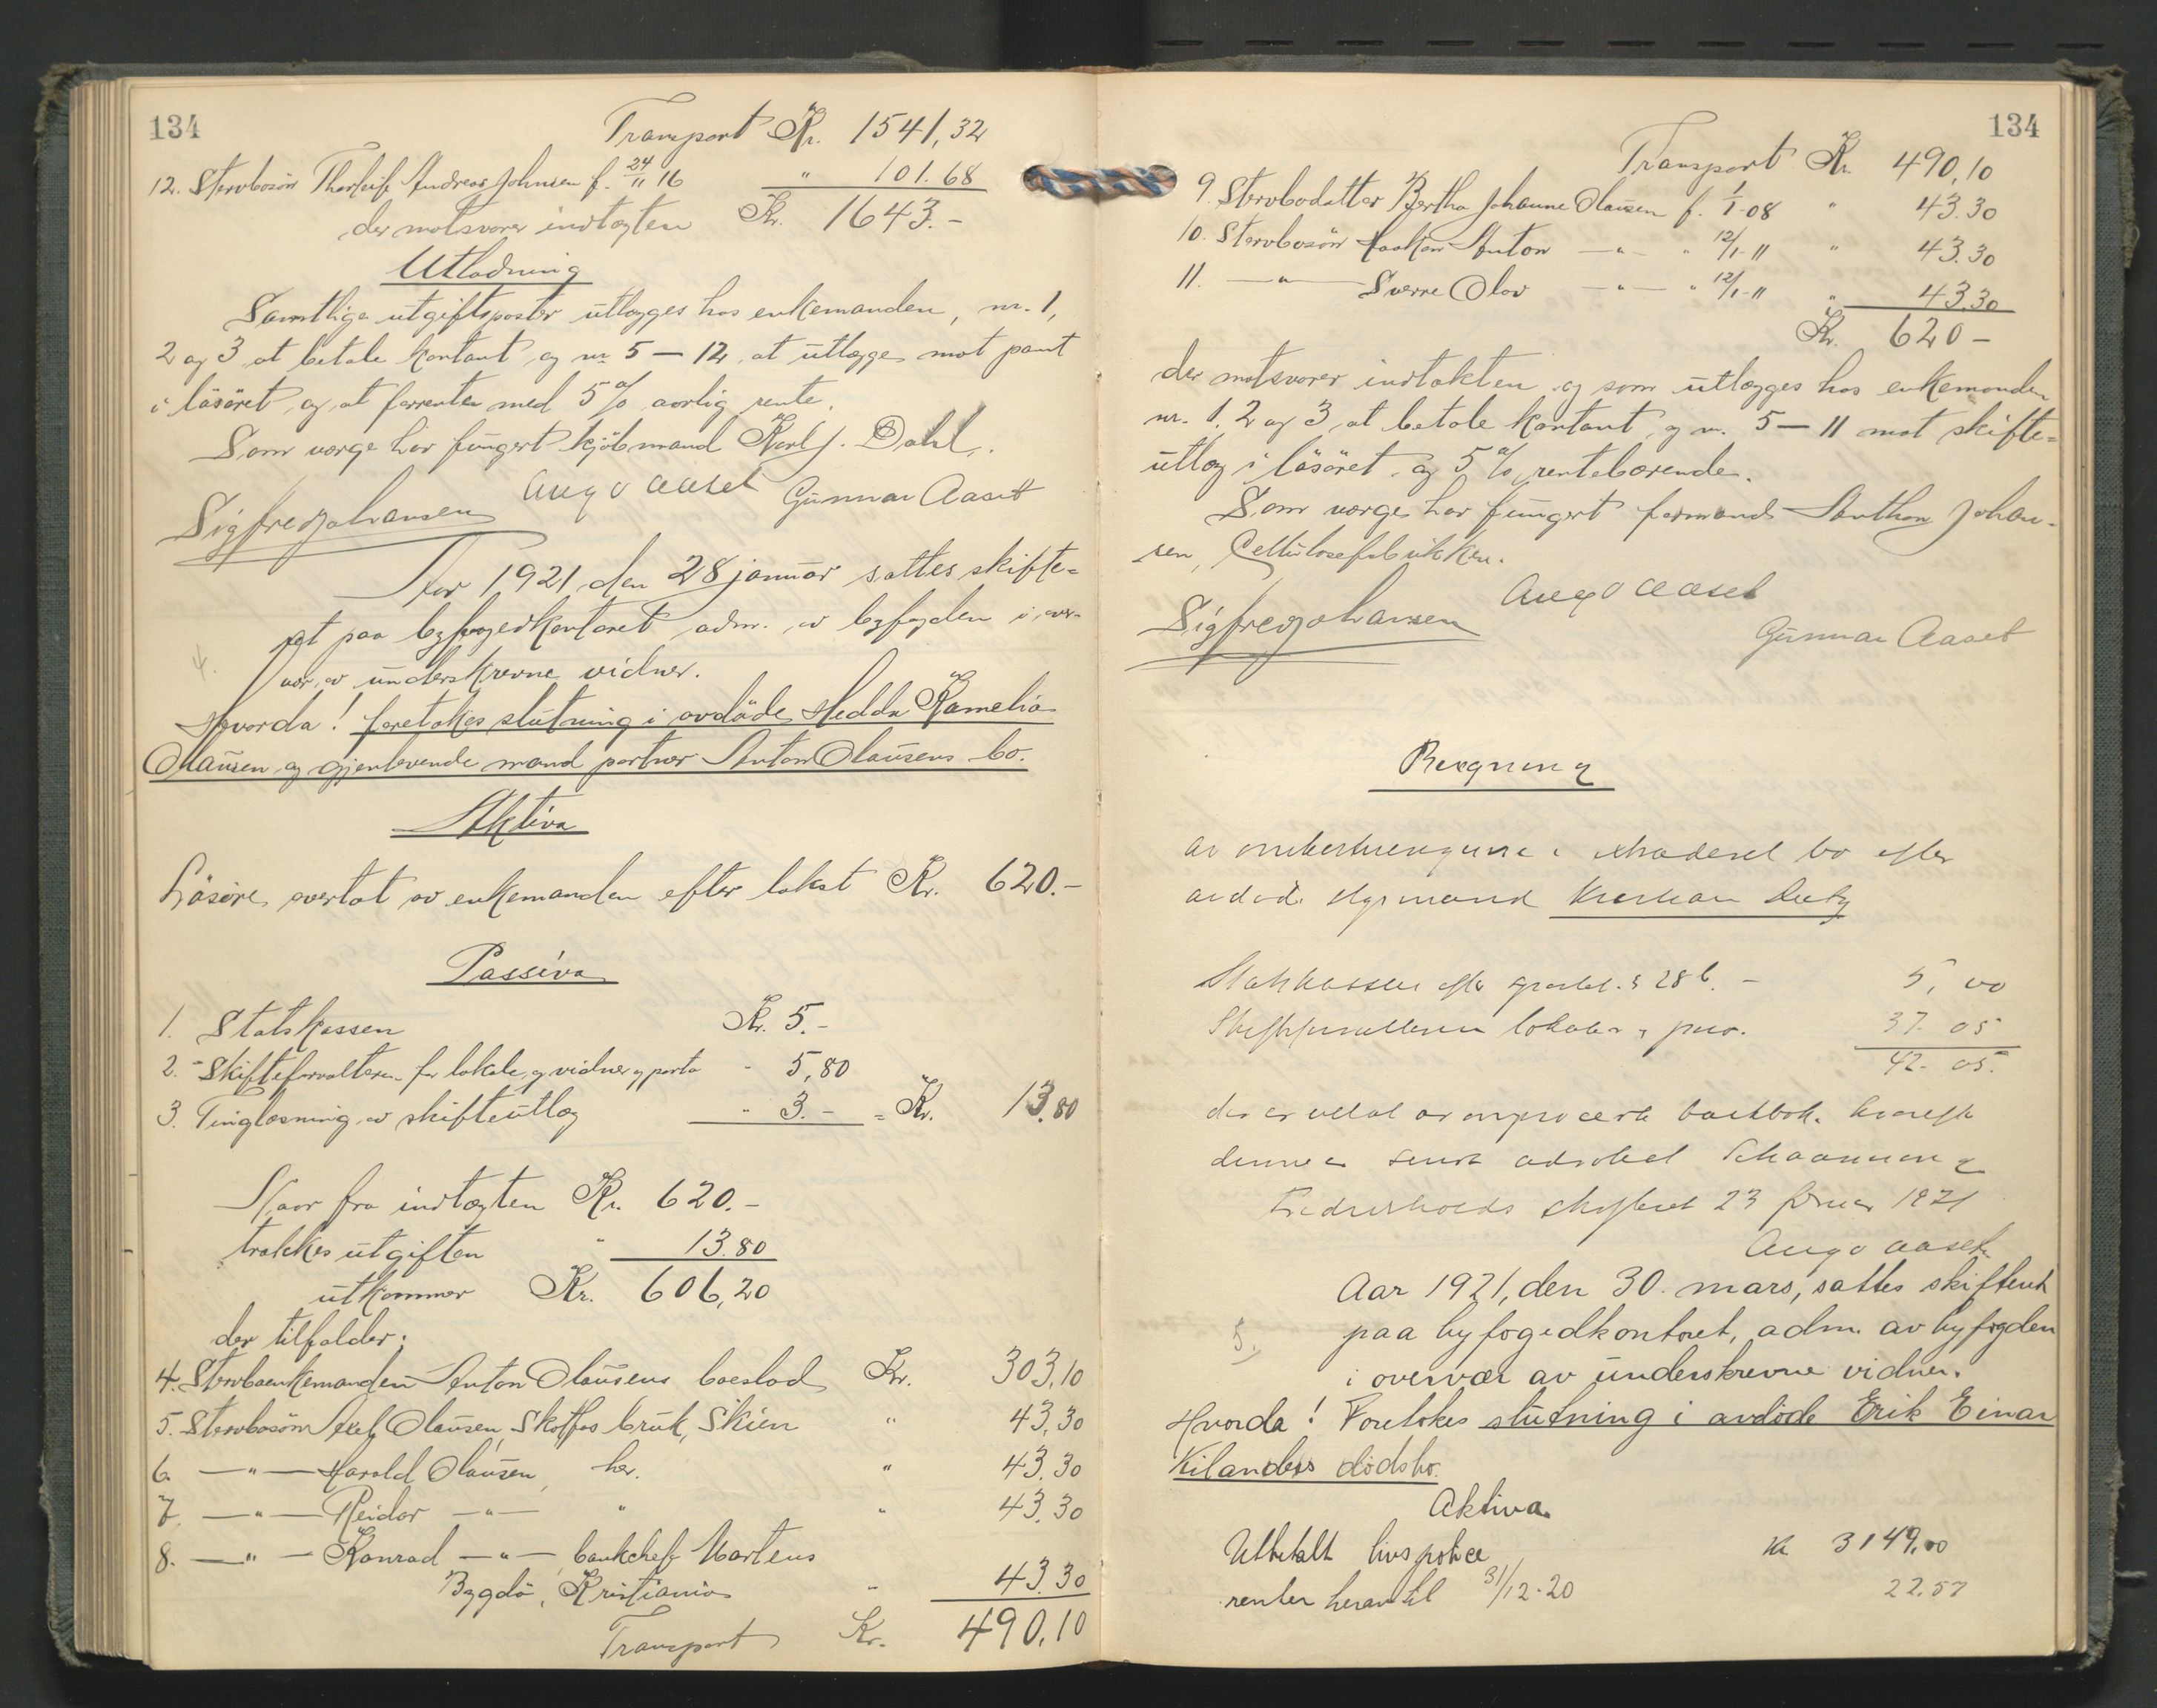 134
Transport Kr. 1541,32
12. Stervbosön Thorleif Andreas Johnsen f. 24/11 16 " 101.68
der motsvarer indtægten Kr. 1643.-
Utlodning
Samtlige utgiftsposter utlægges hos enkemanden, nr. 1,
2 og 3 at betale kontant og nr 5 — 12 at utlægges mot pant
i lösöret og at forrentes med 5 % aarlig rente.
Som værge har fungert kjöbmand Karl J. Dahl.
Sigfred Johansen Aug Aaset Gunnar Aaset
Aar 1921 den 28 januar sattes skifte=
ret paa byfogedkontoret adm. av byfogden i over-
4.
vær av underskrevne vidner.
Hvorda! foretokes slutning i avdöde Hedda Kamelia
Olausen og gjenlevende mand portner Anton Olausens bo.
Aktiva
Lösöre, overtat av enkemanden efter takst Kr. 620.-
Passiva
1. Statskassen Kr. 5.-
2. Skifteforvalteren for lokale og vidner og porto " 5,80
3. Tinglæsning av skifteutlæg " 3.- = Kr. 13.80
Naar fra indtægten Kr. 620.-
trækkes utgiften " 13.80
utkommer Kr. 606,20
der tilfalder:
4. Stervboenkemanden Anton Olausens boeslod Kr. 303,10
5. Stervbosön Axel Olausen, Skotfos bruk, Skien " 43,30
6. —"— Harald Olausen, her. " 43.30
7. —"— Reidar —"— " " 43.30
8. —"— Konrad —"— bankchef Martens
Bygdö, Kristiania " 43.30
Transport Kr. 490,10
134
Transport Kr. 490,10
9. Stervbodatter Bertha Johanne Olausen f. 1/1-08 " 43.30
10. Stervbosön Haakon Anton —"— " 12/1-11 " 43.30
11. —"— Sverre Olav —"— " 12/1-11 " 43.30
Kr. 620-
der motsvarer indtækten og som utlægges hos enkemanden
nr. 1, 2 og 3 at betale kontant og nr. 5 — 11 mot skifte=
utlæg i lösöret og 5 % rentebærende.
Som værge har fungert formand Anthon Johan-
sen, Cellulosefabrikken.
Sigfred Johansen Aug Aaset
Gunnar Aaset
Regning
av omkostningerne i bo efter
avdöde
Statskassen efter § 28 b. - 5, 00
Skifteforvalteren lokaler og 37. 05
42. 05.
der er av bankbok. hvorefter
denne er sendt advokat Schaanning
Fredrikstads skifteret 23 februar 1921
Aug Aaset
Aar 1921, den 30. mars, sattes skifteret
paa byfogedkontoret, adm. av byfogden
5.
i overvær av underskrevne vidner.
Hvorda! Foretokes slutning i avdöde Erik Einar
Kilanders dödsbo.
Aktiva.
Utbetalt livspolice kr 3149,00
renter herav til 31/12-20 22.57